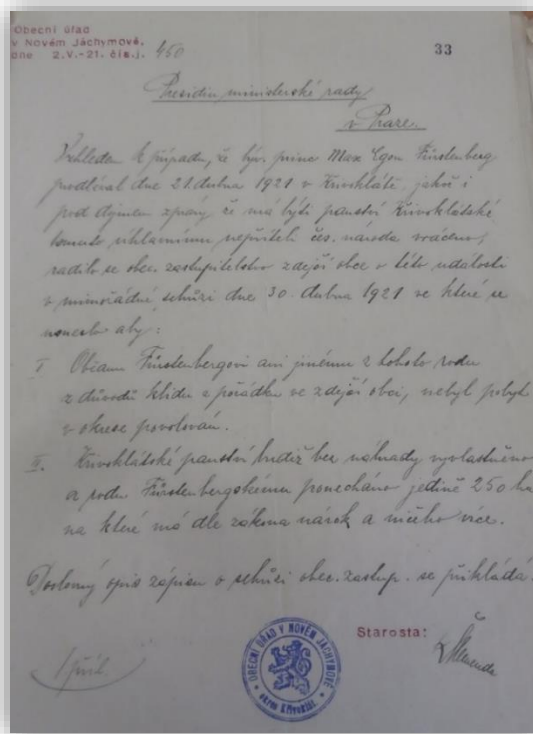 Obecní úřad
v Novém Jáchymově,
dne 2.V.-21. čís.j. 450
33
Presidiu ministerské rady
v Praze.
Vzhledem k případu, že býv. princ Max Egon Fürstenberg
prodléval dne 21. dubna 1921 v Křivoklátě, jakož i
pod dojmem zprávy, že má býti panství Křivoklátské
tomuto úhlavnímu nepříteli čes. národa vráceno,
radilo se obec. zastupitelstvo zdejší obce o této události
v mimořádné schůzi dne 30. dubna 1921 ve které se
usneslo aby:
I Občanu Fürstenbergovi ani jinému z tohoto rodu
z důvodů klidu a pořádku ve zdejší obci, nebyl pobyt
v okrese povolován.
II. Křivoklátské panství budiž bez náhrady vyvlastněno
a rodu Fürstenbergskému ponecháno jedině 250 ha
na které má dle zákona nárok a ničeho více.
Doslovný opis zápisu o schůzi obec. zastup. se přikládá.
Starosta:
1 příl.
OBECNÍ ÚŘAD V NOVÉM JÁCHYMOVĚ
okres Křivoklát